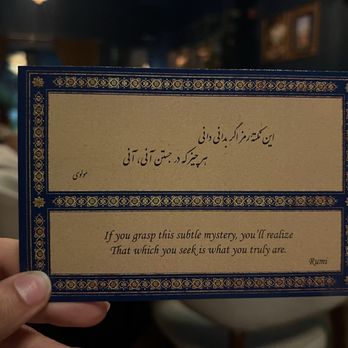 این نکتهٔ رمز اگر بدانی دانی
هر چیز که در جستن آنی، آنی
مولوی
If you grasp this subtle mystery, you'll realize
That which you seek is what you truly are.
Rumi